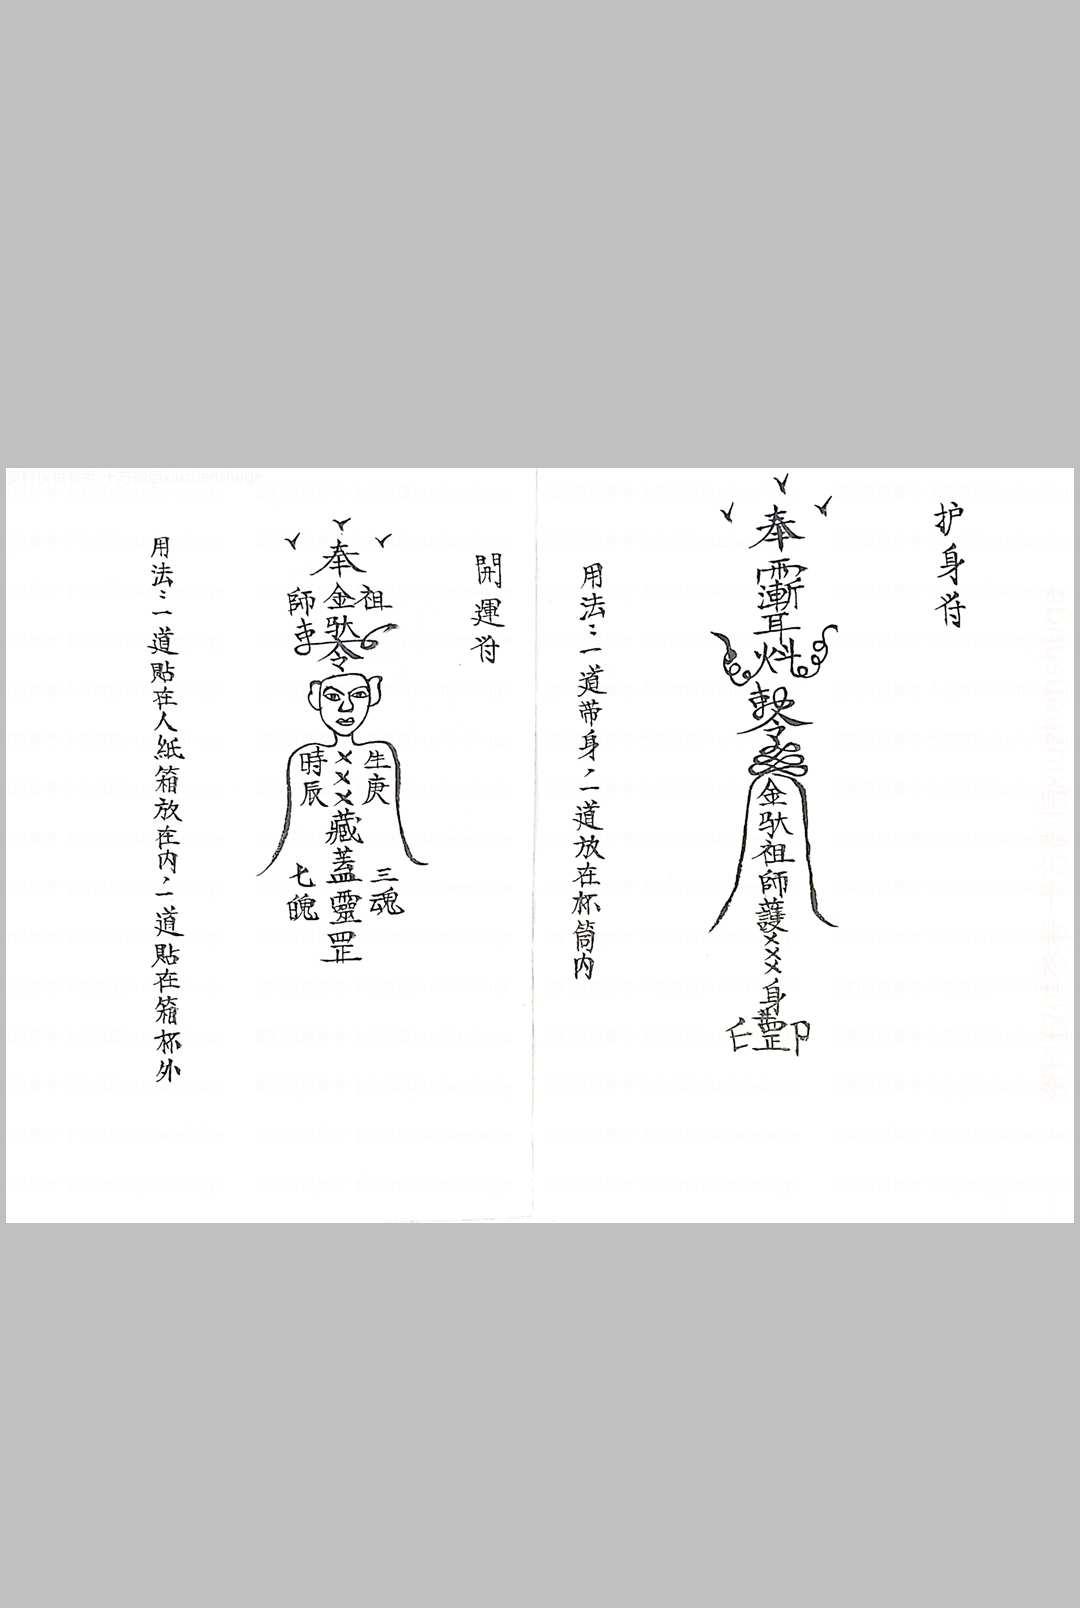 护身符
奉
令
金馱祖師護×××身
罡
用法：一道带身二道放在杯筒内
開運符
奉
祖
師
金馱
令
生庚
時辰
×××藏蓋靈罡
三魂
七魄
用法：一道貼在人紙箱放在内二道貼在箱杯外